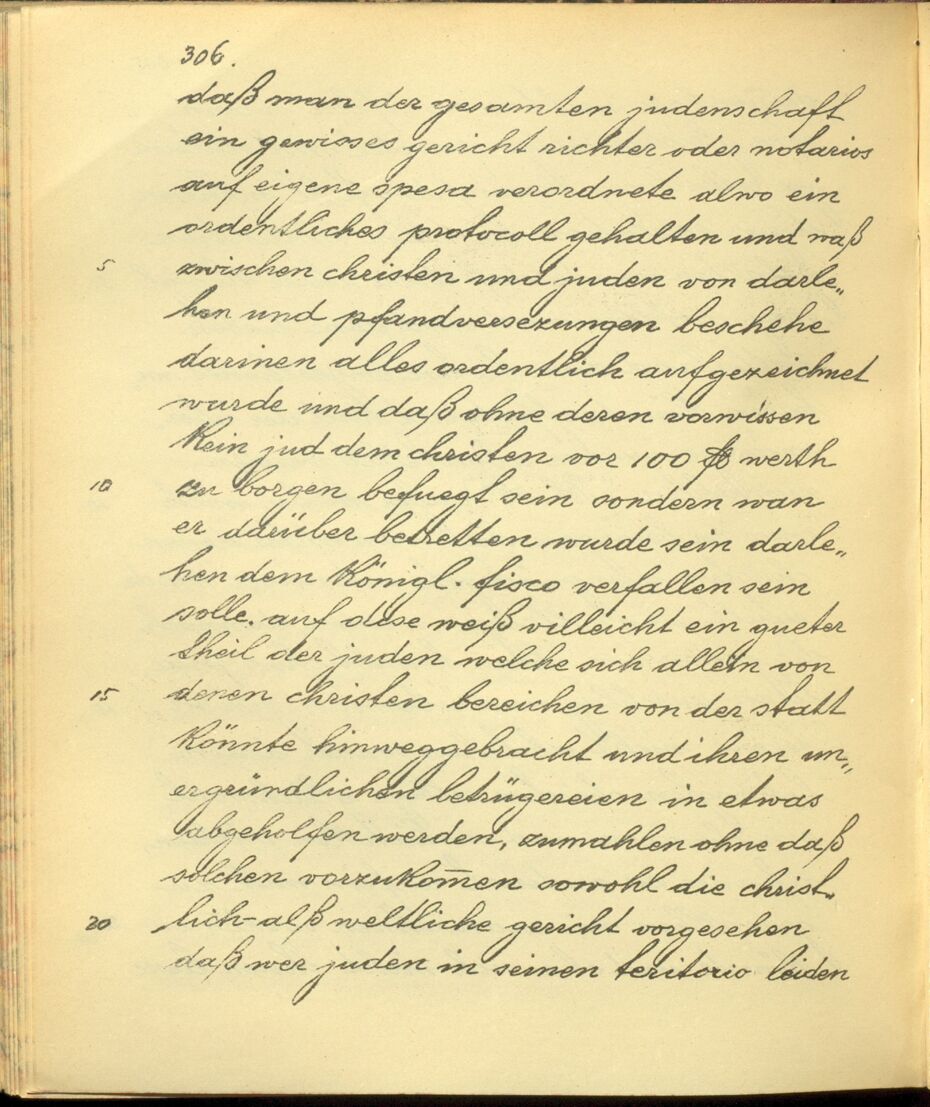 306.
daß man der gesamten judenschaft
ein gewisses gericht richter oder notarios
auf eigene spesa verordnete alwo ein
ordentliches protocoll gehalten und waß
5 zwischen christen und juden von darle„
hen und pfandversezungen beschehe
darinen alles ordentlich aufgezeichnet
wurde und daß ohne deren vorwissen
Kein jud dem christen vor 100 f werth
10 zu borgen befuegt sein sondern wan
er darüber betretten wurde sein darle„
hen dem Königl. fisco verfallen sein
solle. auf dise weiß villeicht ein gueter
theil der juden welche sich allein von
15 denen christen bereichen von der statt
Könnte hinweggebracht und ihren un„
ergründlichen betrügereien in etwas
abgeholfen werden, zumahlen ohne daß
solchen vorzukom̅en sowohl die christ„
20 lich-alß weltliche gericht vorgesehen
daß wer juden in seinen teritorio leiden